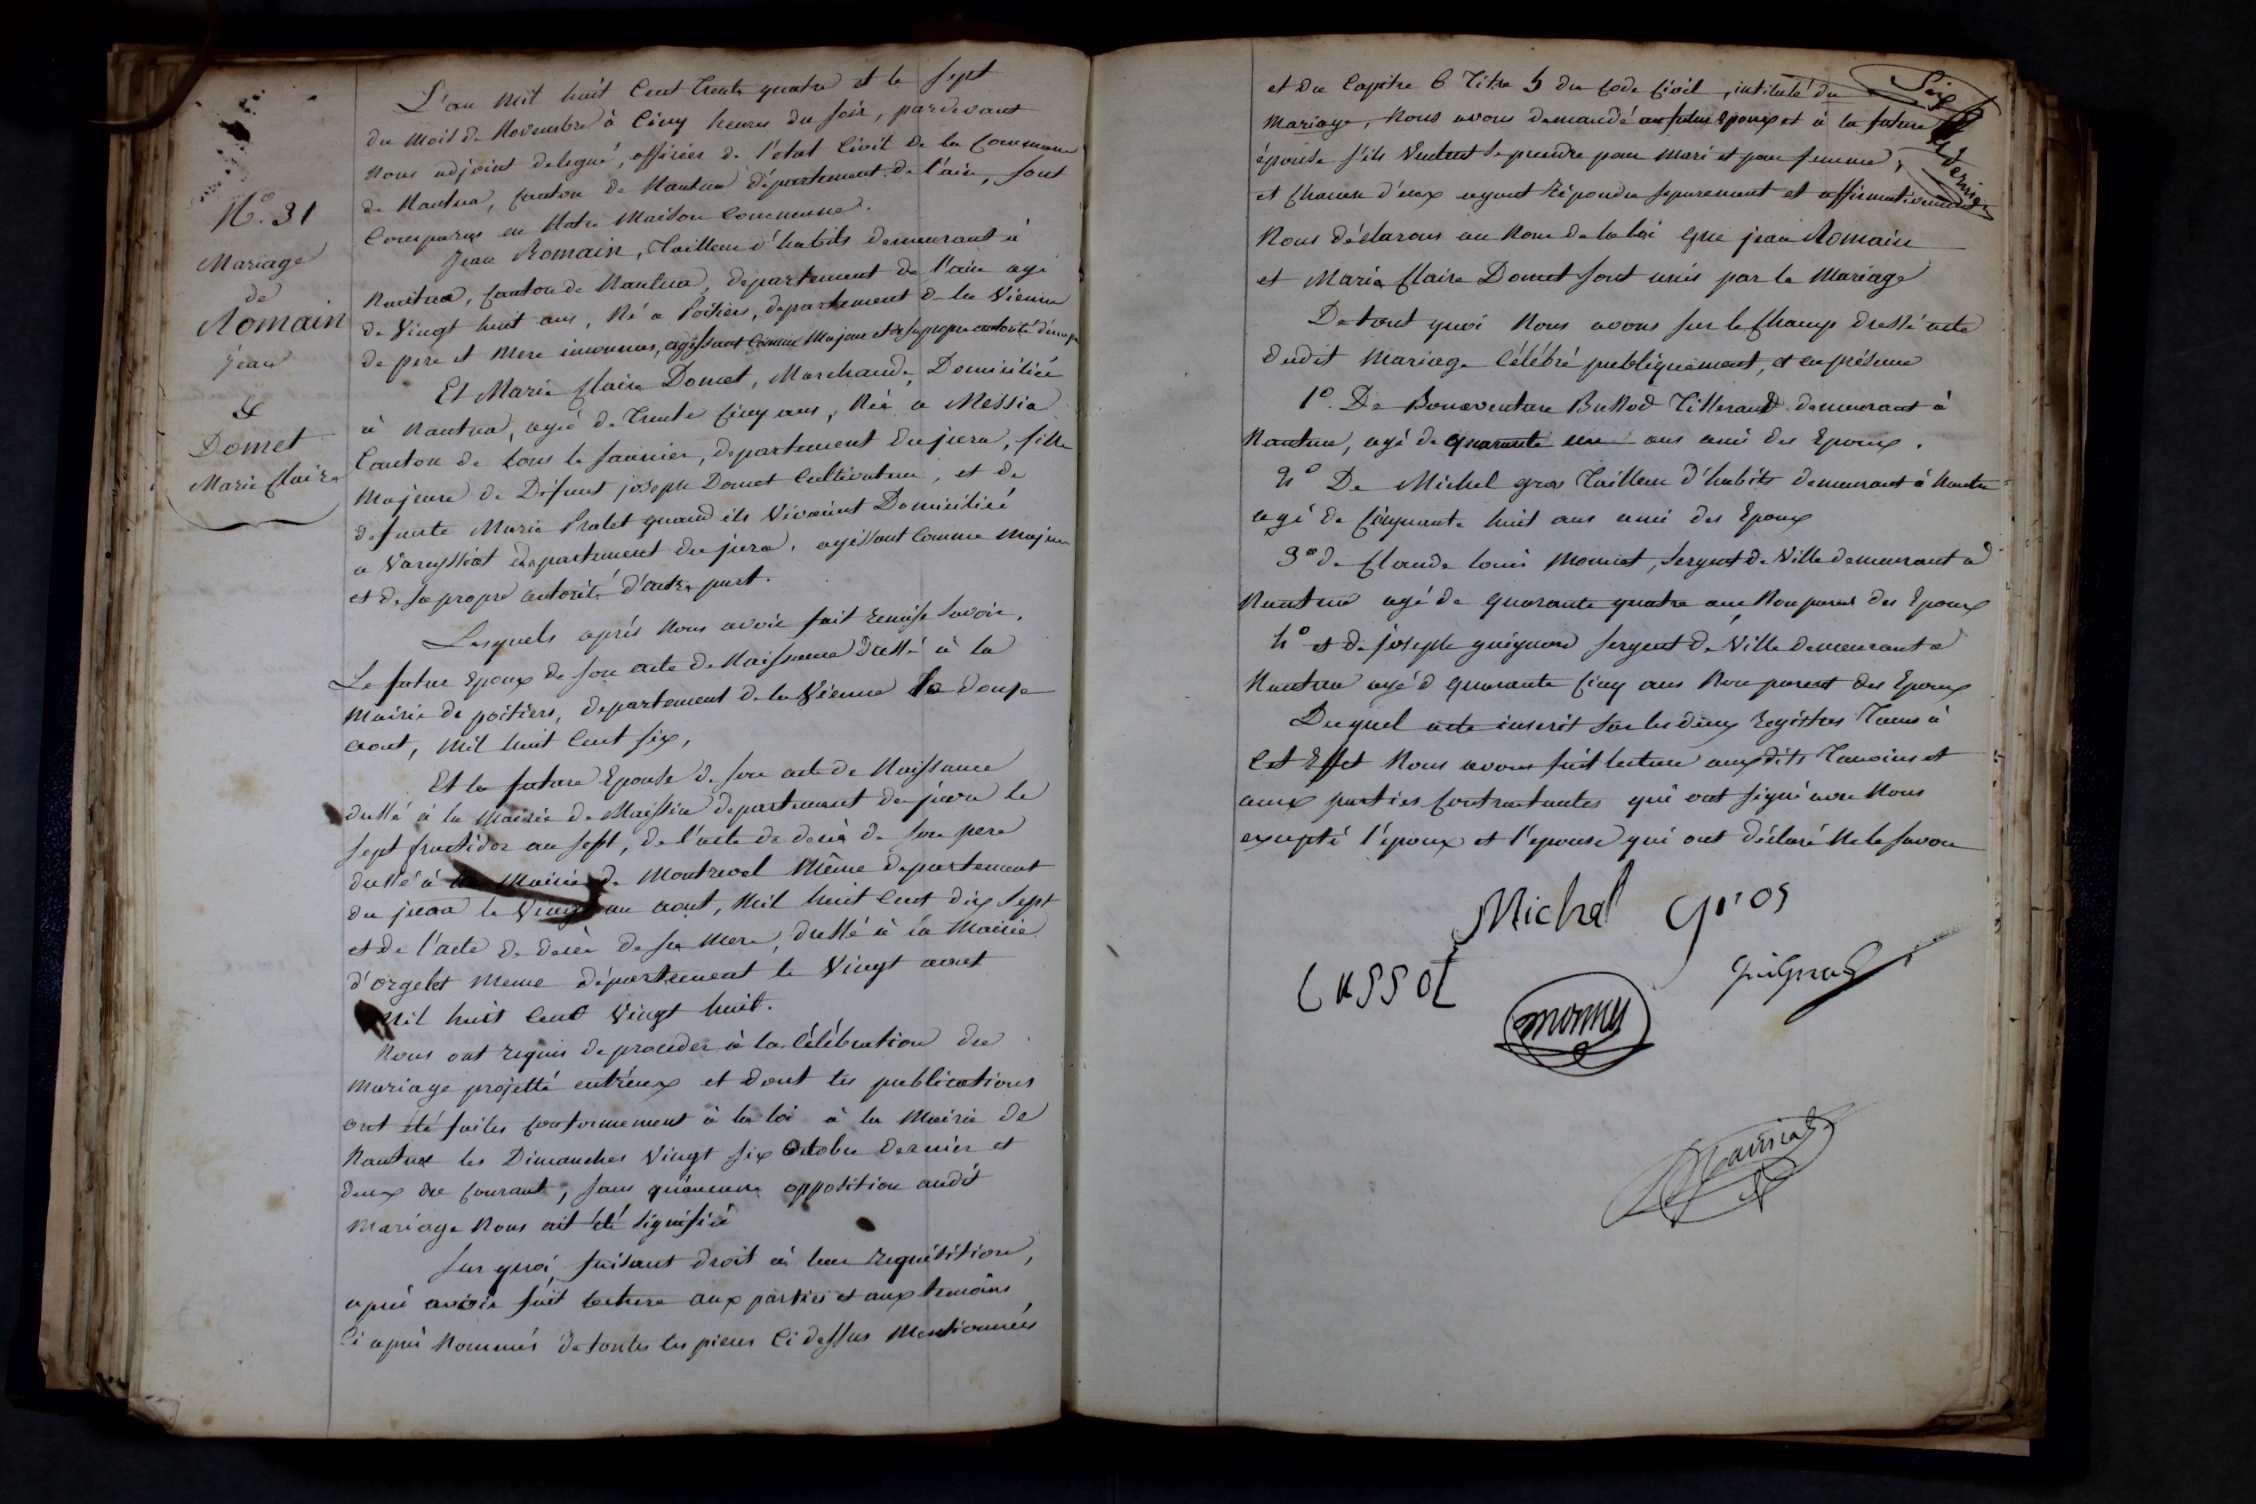 N.º 31
Mariage
de
Romain
jean
&
Domet
Marie Claire
L'an Mil huit Cent trente quatre et le sept
du mois de Novembre à Cinq heures du soir, pardevant
Nous adjoint delegué, officier de l'etat Civil de la Commune
de Nantua, Canton de Nantua département de l'ain, sont
Comparus en Notre Maison Commune.
Jean Romain, Tailleur d'habits demeurant à
Nantua, Canton de Nantua, département de l'ain agé
de Vingt huit ans, Né a Poitiers, departement de la Vienne
de pere et Mere inconnus, agissant Comme Majeur et de sa propre autorité d'une pt
Et Marie Claire Domet, Marchande, Domiciliée
à Nantua, agée de trente Cinq ans, Née a Messia
Canton de Lons le saunier, departement du jura, fille
Majeure de Défunt joseph Domet Cultivateur, et de
defunte Marie Prolet quand ils Vivaient Domicilié
a département du jura, agissant Comme Majeure
et de sa propre autorité d'autre part.
Lesquels après Nous avoir fait remise savoir,
Le futur Epoux de son acte de Naissance dressé à la
Mairie de poitiers, departement de la Vienne le douze
aout, Mil huit Cent six,
Et la future Epouse de son acte de Naissance
dressé à la Mairie de Messia departement du jura le
sept fructidor an sept, de l'acte de decès de son pere
dressé à la Mairie de Montrevel Même departement
du jura le Vingt un aout, Mil huit Cent dix sept
et de l'acte de decès de sa Mere, dressé à la Mairie
d'orgelet Meme département le Vingt aout
Mil huit Cent Vingt huit.
Nous ont requis de proceder à la Célébration du
mariage projetté entr'eux et dont les publications
ont été faites Conformement à la loi à la Mairie de
Nantua les Dimanches Vingt six octobre Dernier et
deux du Courant, sans qu'aucune opposition audit
Mariage Nous ait été signifiée
Sur quoi, faisant droit à leur requisition,
après avoir fait lecture aux parties et aux temoins
Ci après Nommés de toutes les pieces Ci dessus Mentionnées
Six
et dernier
et du Capitre 6 Titre 5 du Code Civil, intitulé du
Mariage, Nous avons demandé au futur Epoux et à la future
épouse s'ils Veulent se prendre pour Mari et pour femme,
et Chacun d'eux ayant répondu séparement et affirmativement
Nous déclarons au Nom de la loi que jean Romain
et Marie Claire Domet sont unis par le Mariage
De tout quoi Nous avons sur le Champ dressé acte
dudit Mariage Célébré publiquement, et en présence
1º. De Bonaventure Tisserand demeurant à
Nantua, agé de quarante un ans ami des Epoux.
2º De Michel gros Tailleur d'habits demeurant à Nantua
agé de Cinquante huit ans ami des Epoux
3º de Claude louis Monnet, Sergent de Ville demeurant à
Nantua agé de quarante quatre ans Non parent des Epoux
4º et de joseph guignard sergent de Ville demeurant a
Nantua agé de quarante Cinq ans Non parent des Epoux
Duquel acte inscrit sur les deux registres Tenus à
Cet Effet Nous avons fait lecture auxdits Temoins et
aux parties Contractantes qui ont signé avec Nous
excepté l'époux et l'epouse qui ont déclaré Ne le savoir
Michal gros